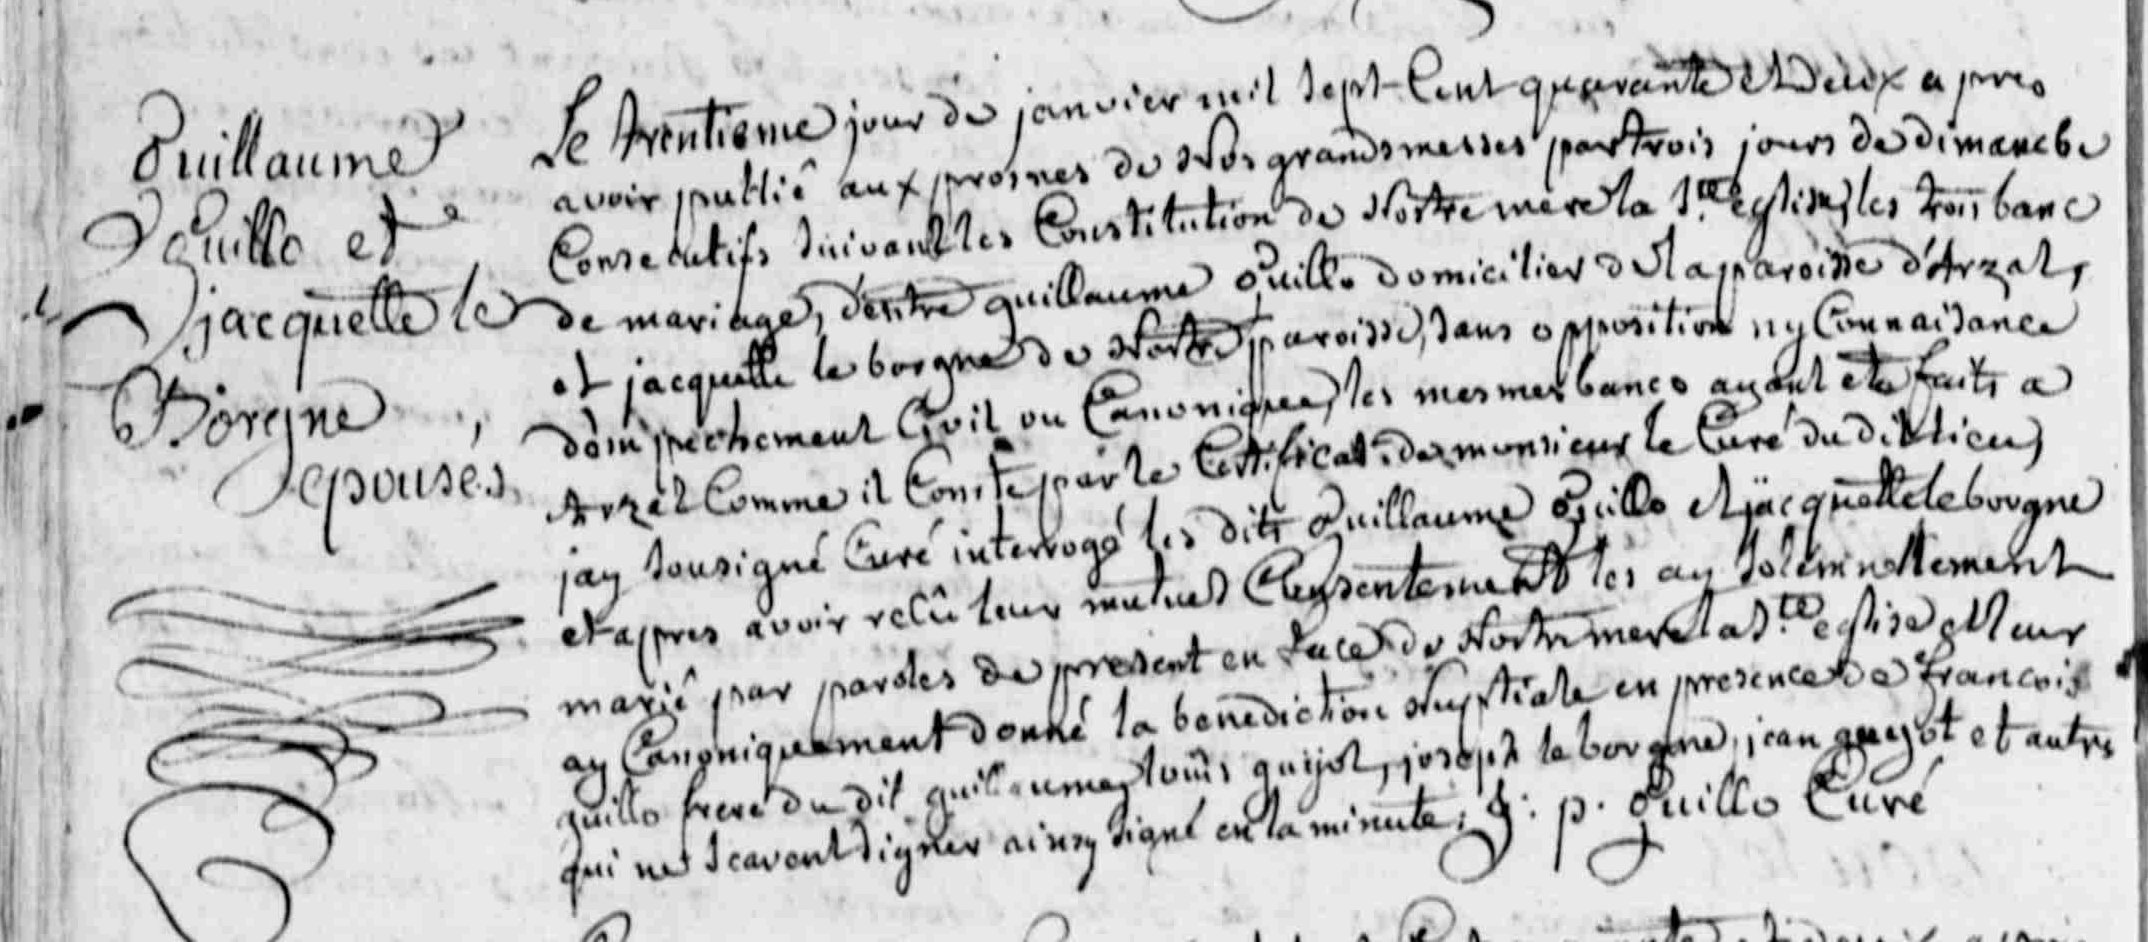 Guillaume
Guillo et
jacquette le
Borgne
epousés
Le trentieme jour de janvier mil sept-Cent quarante et deux apres
avoir publié aux prosnes de Nos grandsmesses par trois jours de dimanche
Consecutifs suivant les Constitution de Nostre mere la Ste eglise, les trois banc
de mariage, d'entre guillaume Guillo domicilier de la paroisse d'Arzal,
et jacquette le borgne de Nostre paroisse, sans opposition ny Connaisance
d'ompechement Civil ou Canonique, les mesmes bancs ayant eté faits a
Arzal Comme il Conste par le Certificat de monsieur le Curé du dit lieu,
jay sousigné Curé interrogé les dits Guillaume Guillo et jacquette le borgne
et appres avoir reçû leur mutuel Consentement les ay solemnellement
marié par paroles de present en face de Nostre mere la Ste eglise et leur
ay Canoniquement donné la benediction Nuptiale en presence de francois
guillo frere du dit guillaume, louis guijot, joseph le borgne, jean guyot et autres
qui ne scavent signer ainsy signé en la minute: J: p. Guillo Curé